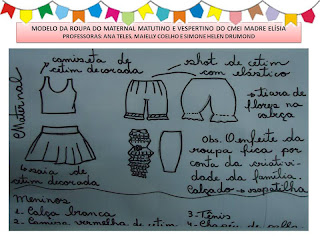 MODELO DA ROUPA DO MATERNAL MATUTINO E VESPERTINO DO CMEI MADRE ELÍSIA
PROFESSORAS: ANA TELES, MAIELLY COELHO E SIMONE HELEN DRUMOND
Maternal
camiseta de
cetim decorada
short de cetim
com elástico
→ tiara de
flores na
cabeça
Obs. O enfeite da
roupa fica por
conta da criativi-
dade da família.
Calçado → sapatilha
→ saia de
cetim decorada
Meninos
1- Calça branca
2- Camisa vermelha de cetim
3- Tênis
4- Chapéu de